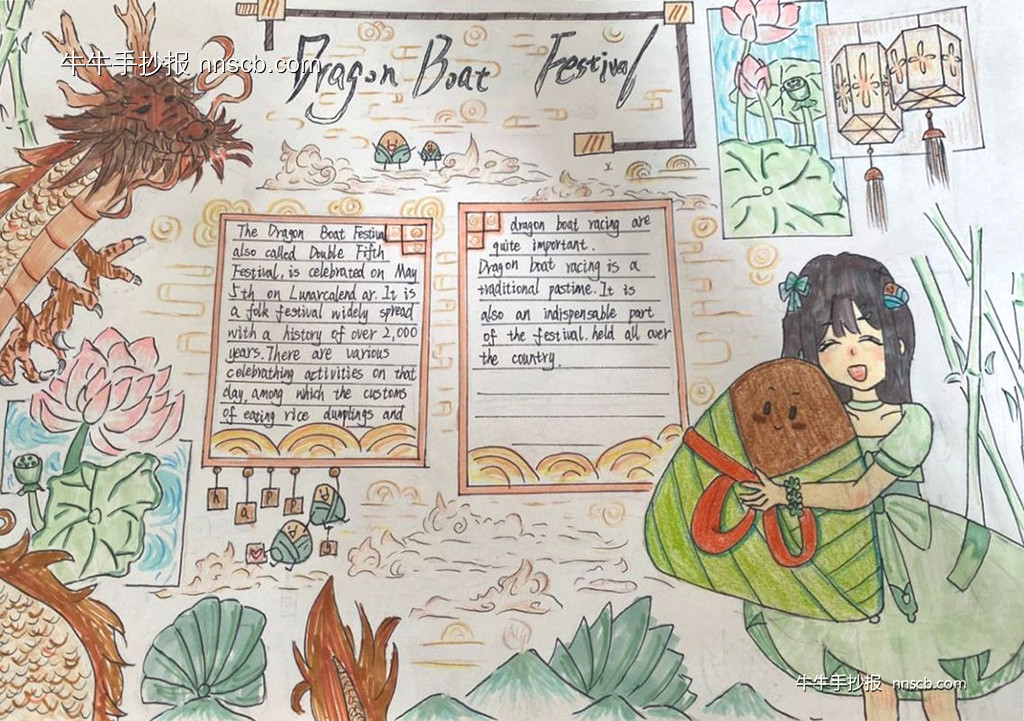 牛牛手抄报 nnscb.com
Dragon Boat Festival
The Dragon Boat Festival
also called Double Fifth
Festival, is celebrated on May
5th on Lunarcalend ar. It is
a folk festival widely spread
with a history of over 2,000
years. There are various
celebrathing activities on that
day, among which the customs
of eating rice dumplings and
dragon boat racing are
quite important.
Dragon boat racing is a
traditional pastime. It is
also an indispensable part
of the festival. held all over
the country.
h a p p y
牛牛手抄报 nnscb.com